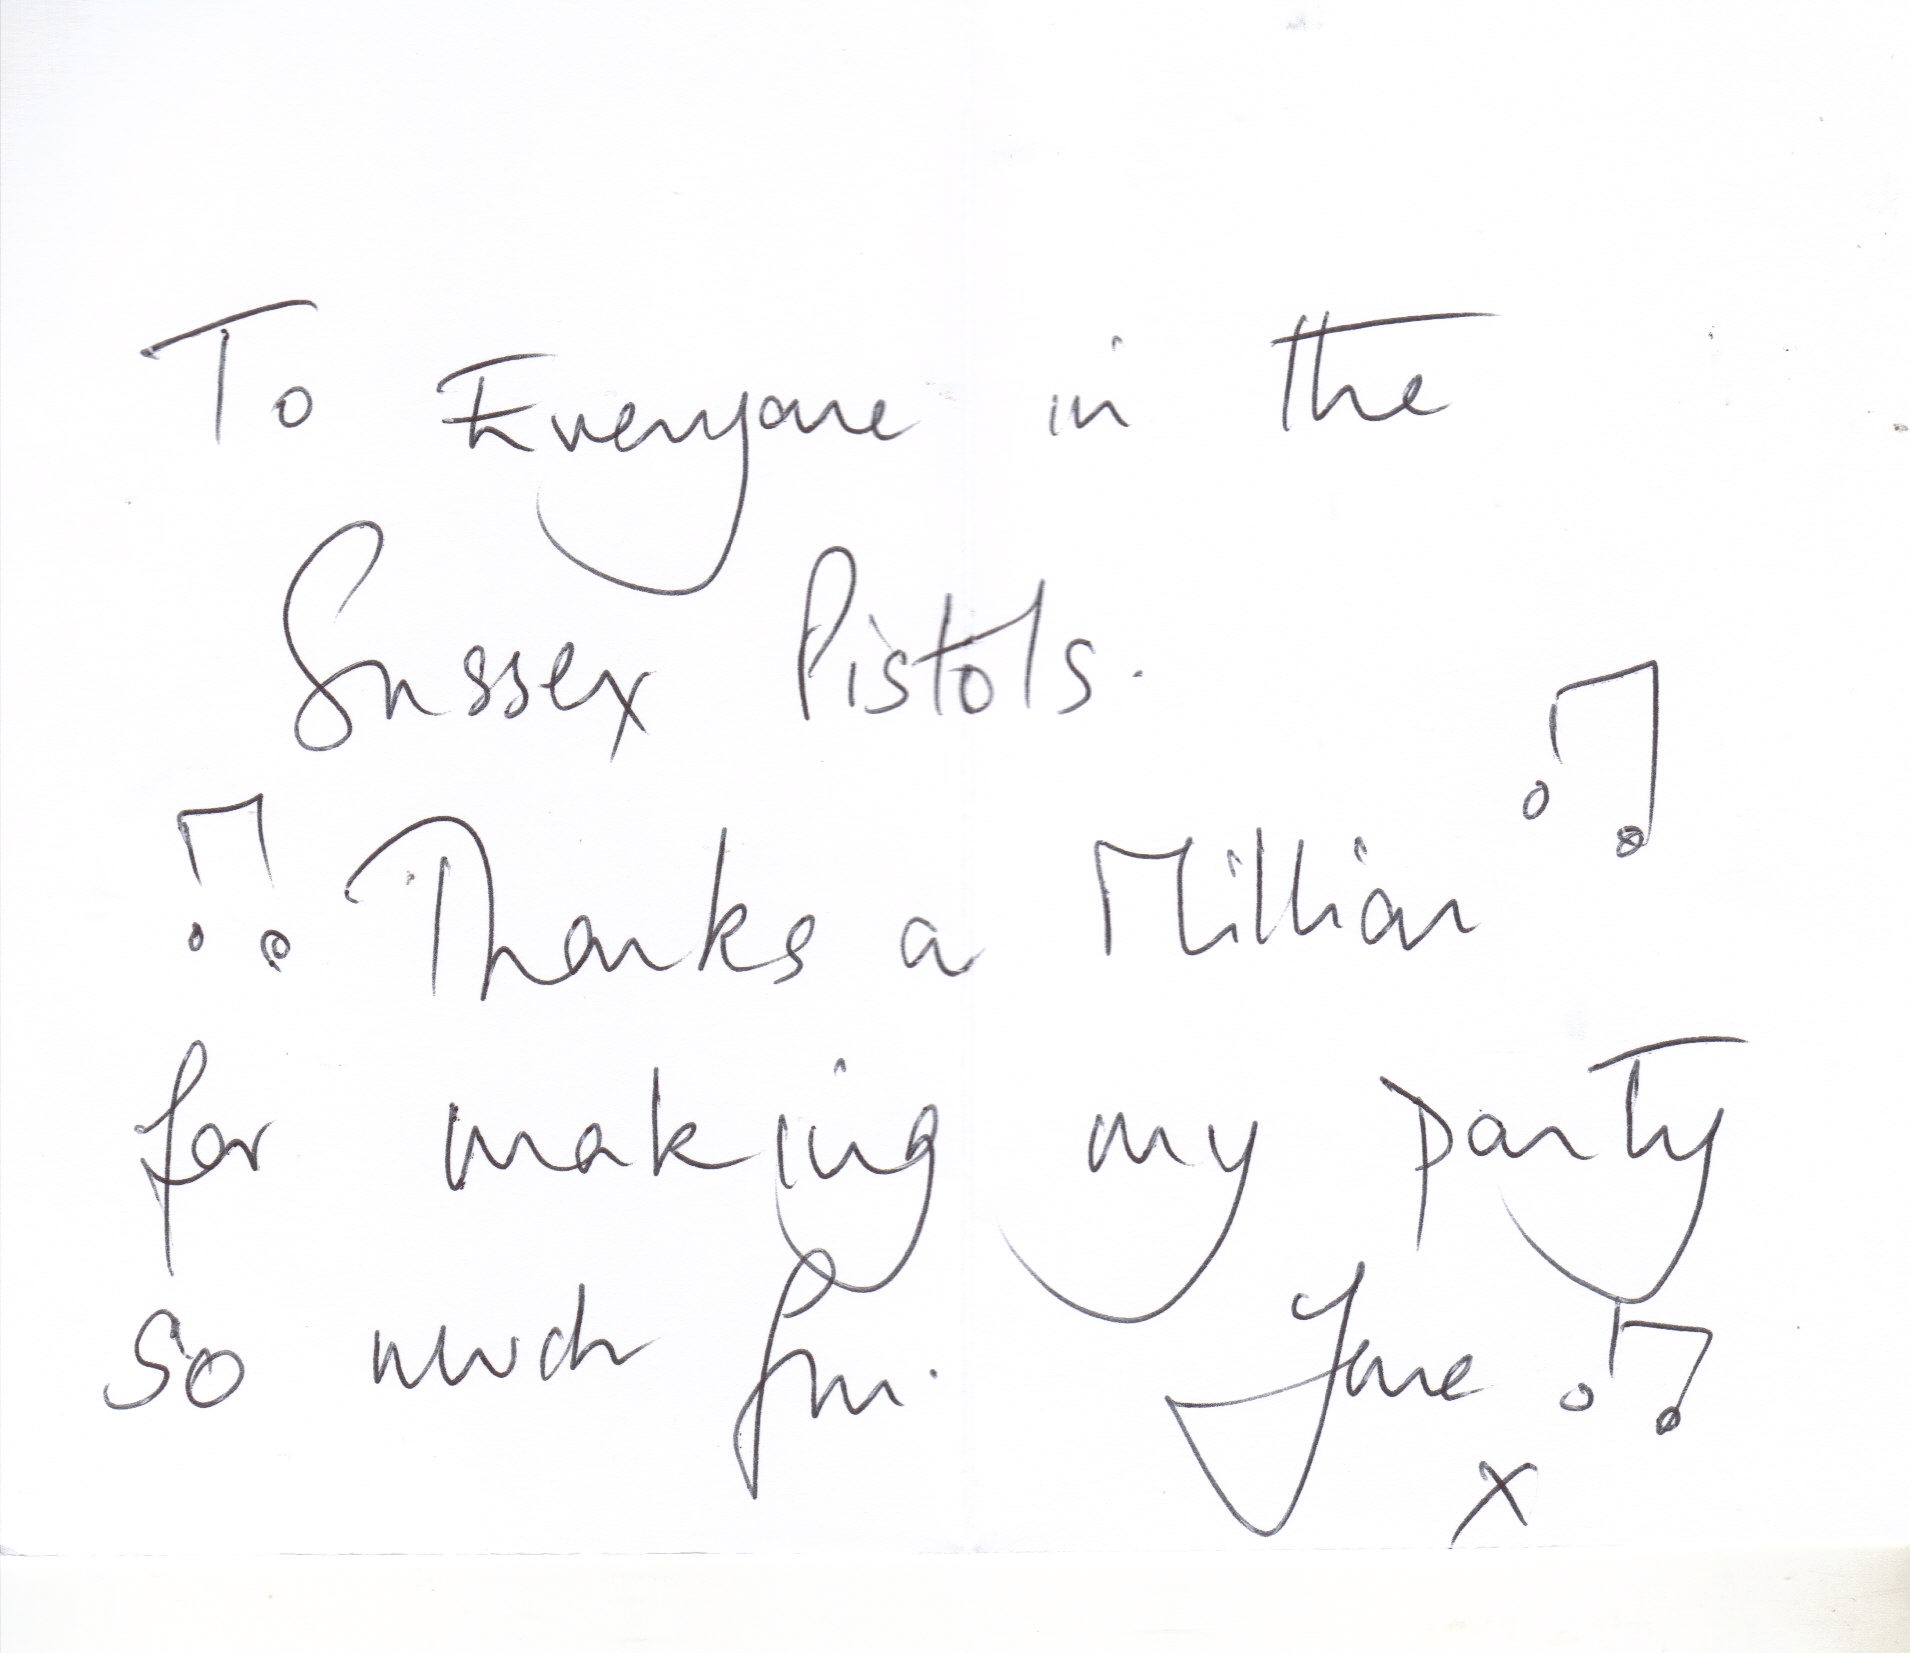 To Everyone in the
Sussex Pistols.
Thanks a Million
for making my party
so much fun. Jane
x